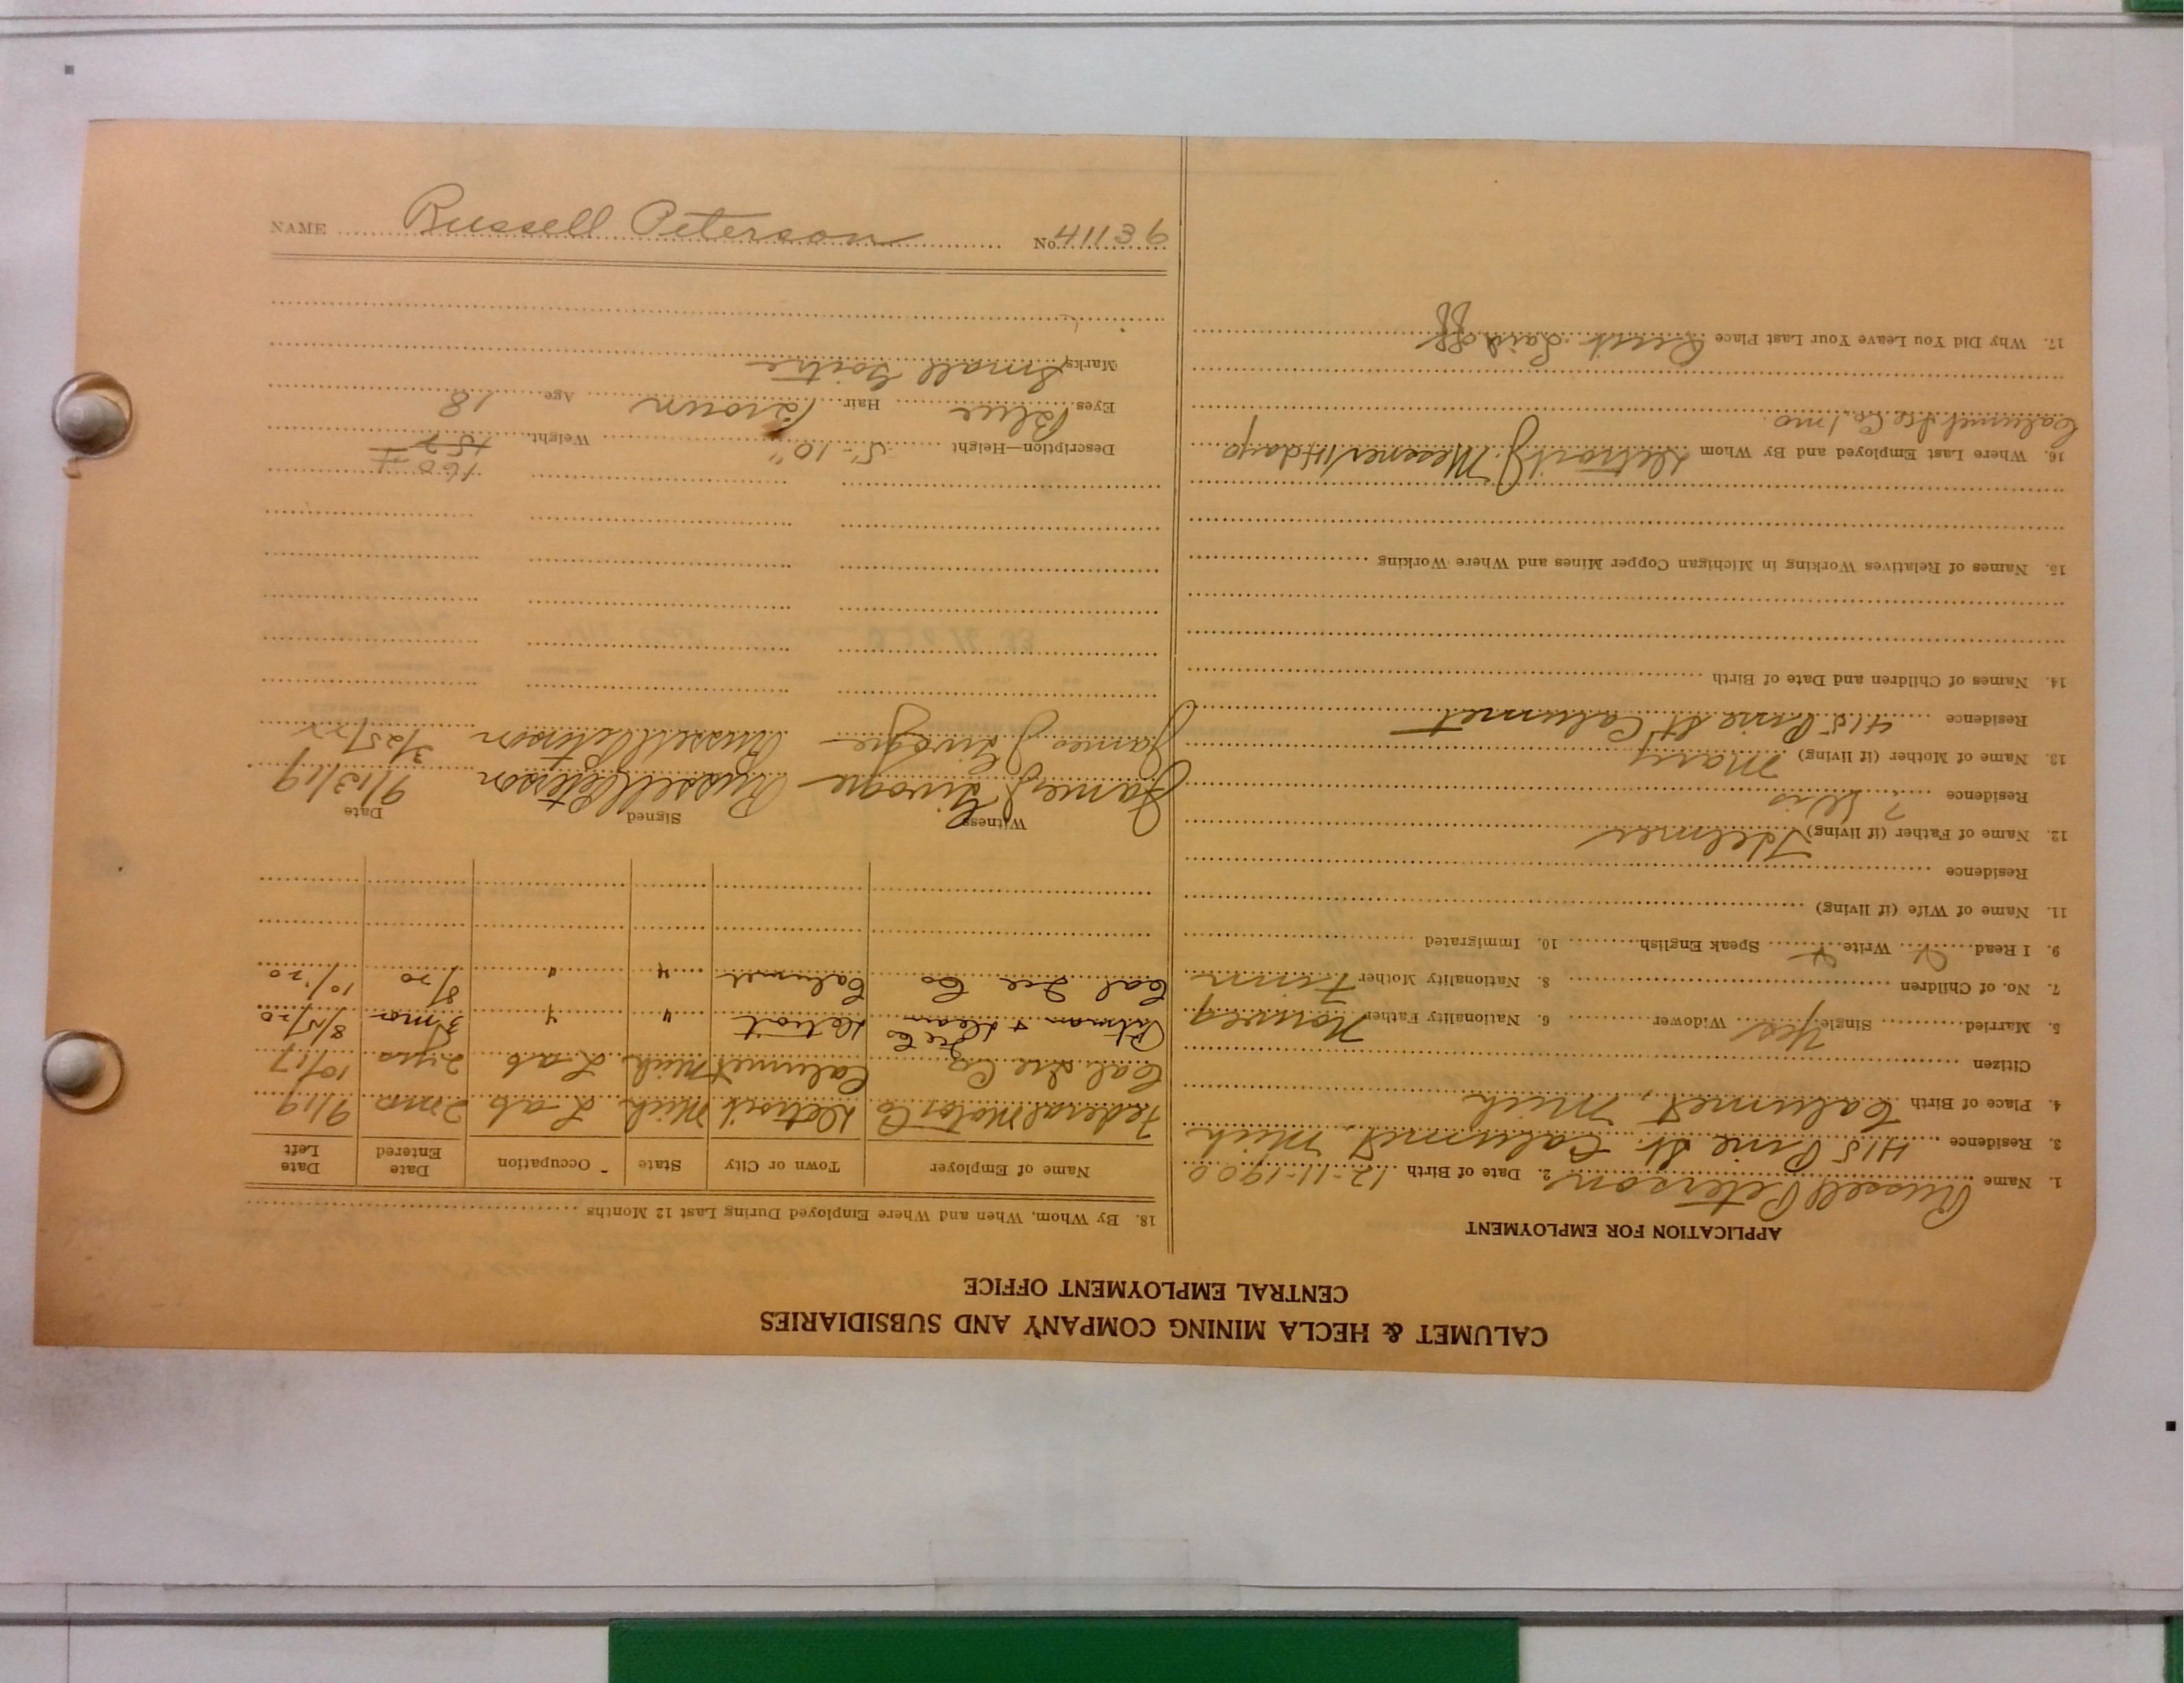 CALUMET & HECLA MINING COMPANY AND SUBSIDIARIES
CENTRAL EMPLOYMENT OFFICE
APPLICATION FOR EMPLOYMENT
1. Name Russell Peterson 2. Date of Birth 12-11-1900
3. Residence 415 Pine St. Calumet, Mich
4. Place of Birth Calumet, Mich
Citizen
5. Married Single Yes Widower 6. Nationality Father Norweg
7. No. of Children 8. Nationality Mother Finn
9. I Read Write Speak English 10. Immigrated
11. Name of Wife (if living)
Residence
12. Name of Father (if living) Helmer
Residence
13. Name of Mother (if living) Mary
Residence 415 Pine St Calumet
14. Names of Children and Date of Birth
15. Names of Relatives Working in Michigan Copper Mines and Where Working
16. Where Last Employed and By Whom Detroit J. Messner 14 days
Calumet Ice Co. 1 mo.
17. Why Did You Leave Your Last Place Quit. Laid off
18. By Whom, When and Where Employed During Last 12 Months
Name of Employer Town or City State Occupation Date Entered Date Left
Federal Motor Co Detroit Mich Lab 2 mos 9/19
Cal. Ice Co. Calumet Mich Lab 2 yrs 10/17
Ice Co Detroit " " 3 mos 8/15/20
Cal Ice Co Calumet " " 8/20 10/20
Witness Signed Date
James J Livogne Russell Peterson 9/13/19
James J Livogne Russell Peterson 3/25/22
160
Description—Height 5'-10" Weight 157
Eyes Blue Hair Brown Age 18
Marks Small Goitre
NAME Russell Peterson No. 41136